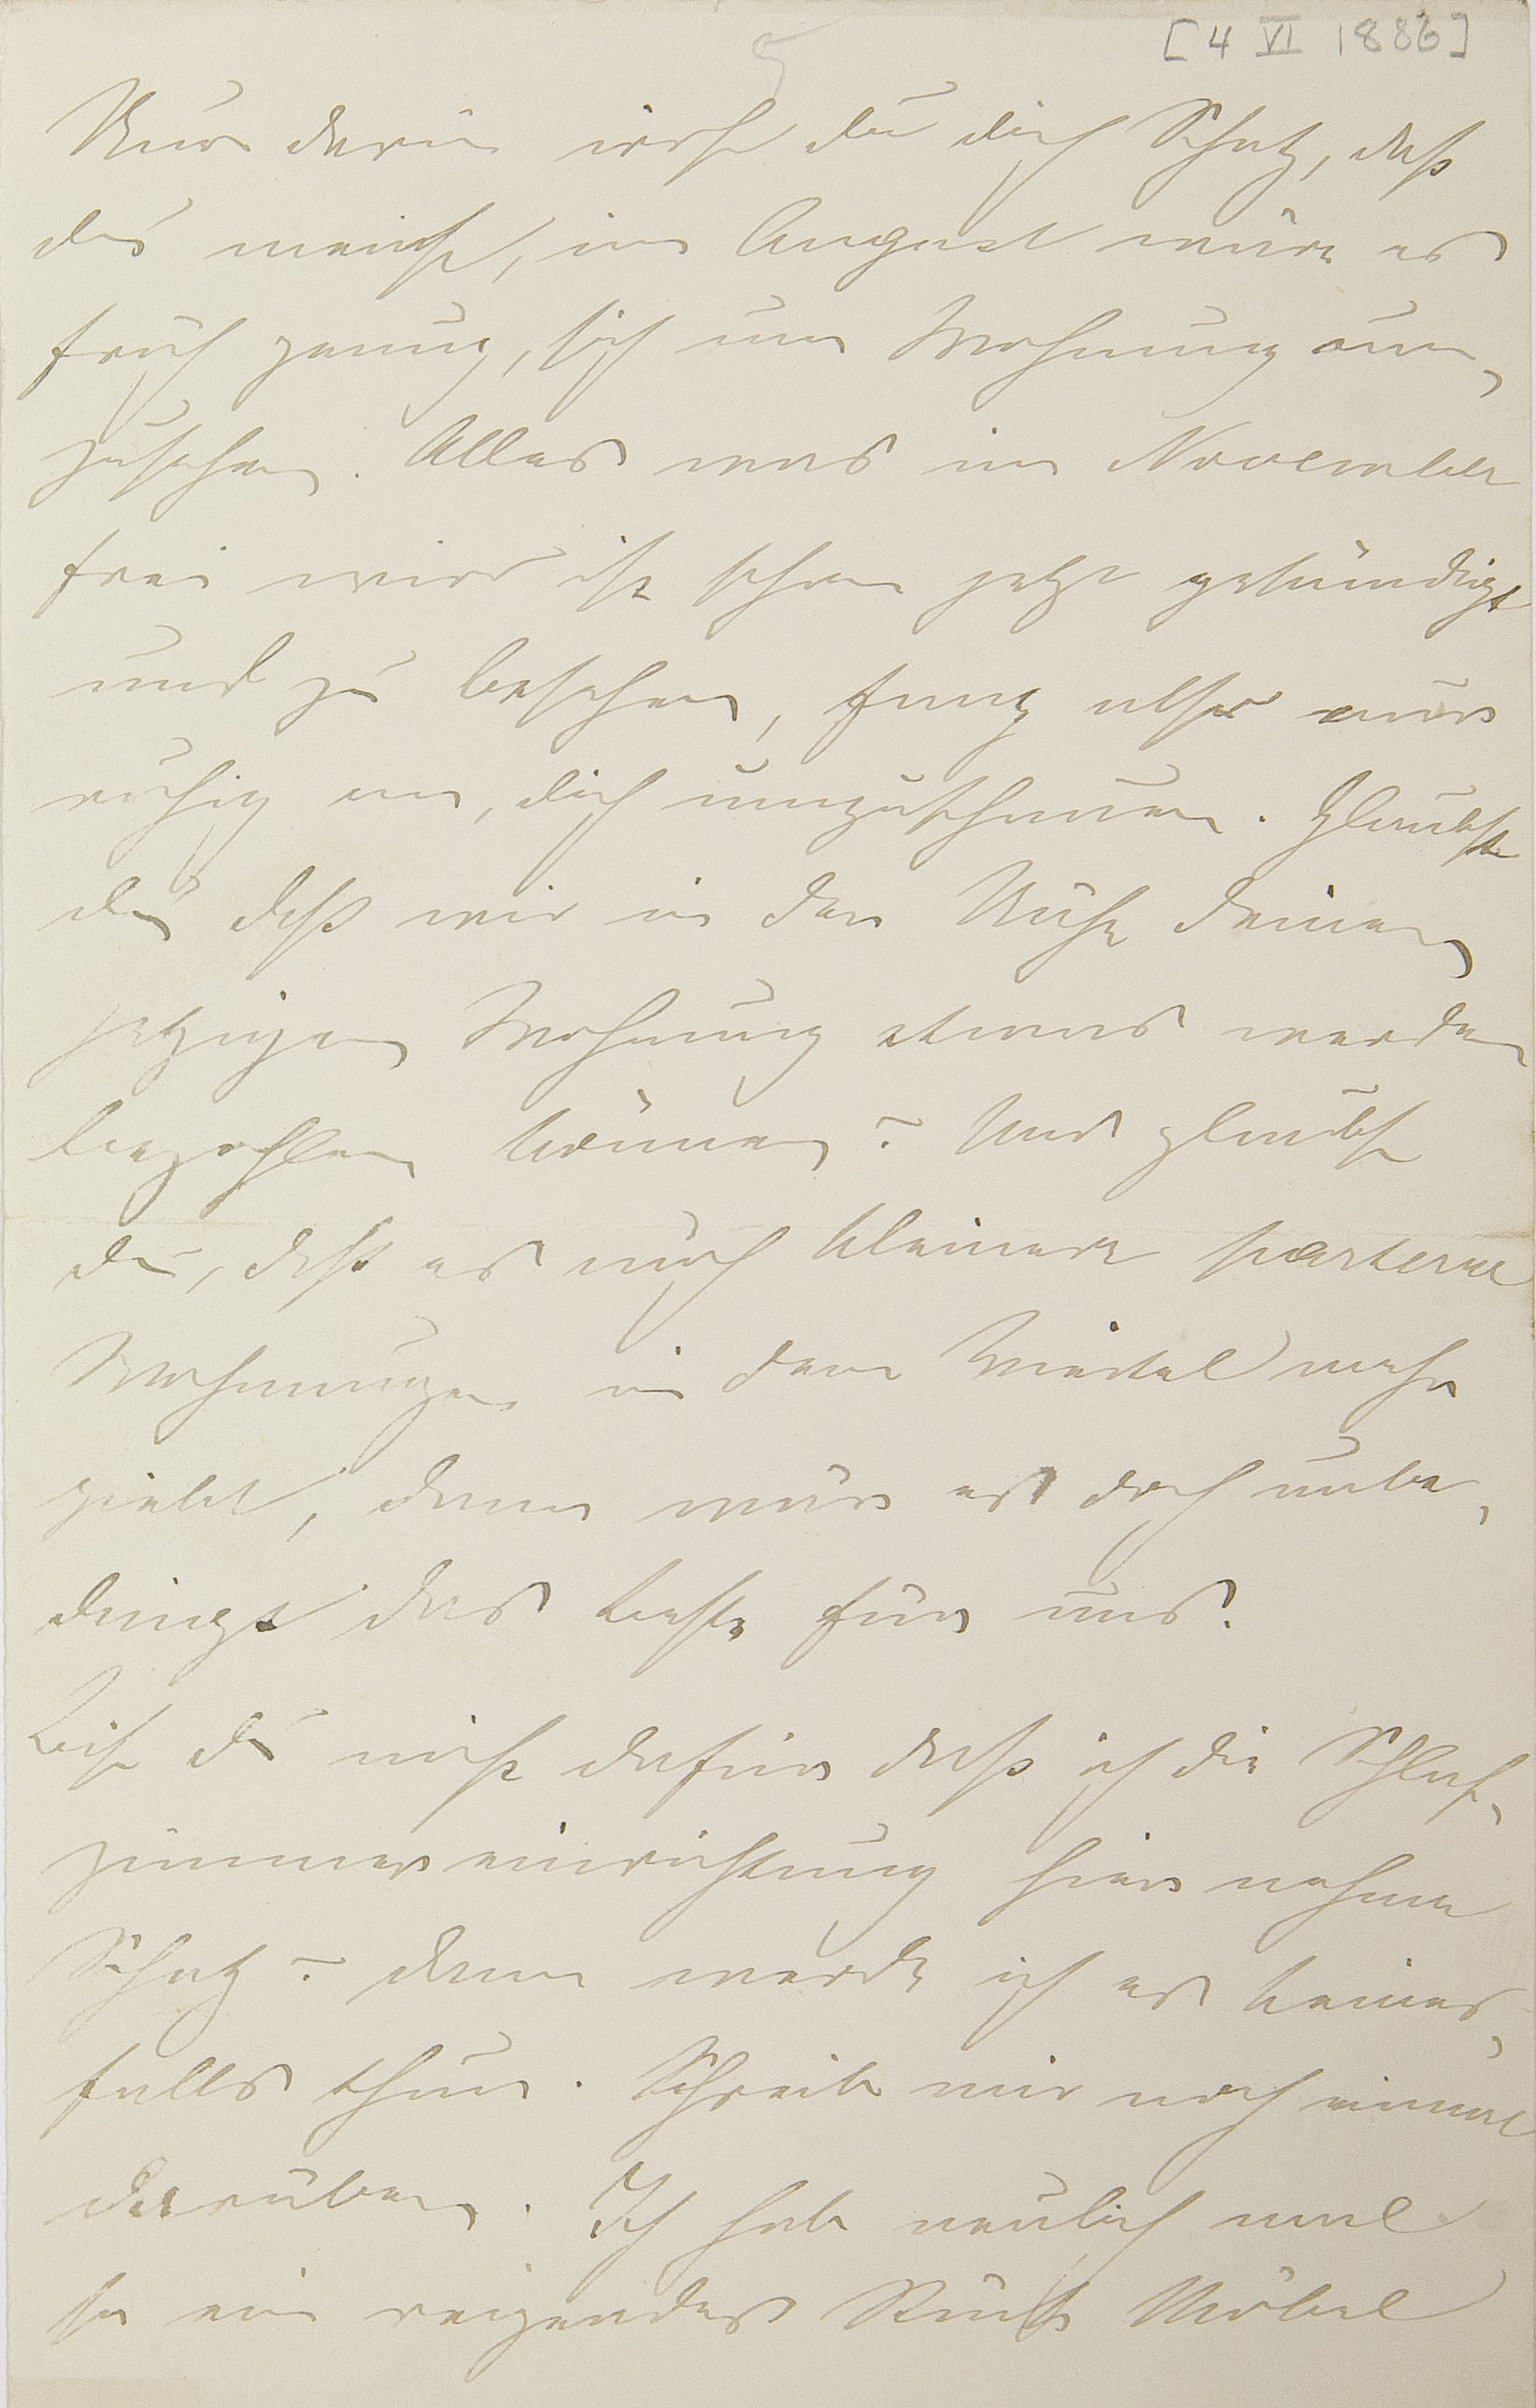 [4 VI 1886]
5
Nur darin irrst du dich Schatz, daß
du meinst, im August wäre es
früh genug, sich um Wohnung um-
zusehen. Alles was im November
frei wird ist schon jetzt gekündigt
und zu besehen, fang also nur
ruhig an, dich umzuschauen. Glaubst
du daß wir in der Nähe deiner
jetzigen Wohnung etwas werden
bezahlen können? Und glaubst
du, daß es auch kleinere parterre
Wohnungen in dem Viertel mehr
giebt, denn wär es doch unbe-
dingt das beste für uns.
Bist du nicht dafür daß ich die Schlaf-
zimmereinrichtung hier nehme
Schatz? dann werde ich es keines-
falls thun. Schreib mir noch einmal
darüber. Ich hab neulich mal
so ein reizendes Stück Möbel